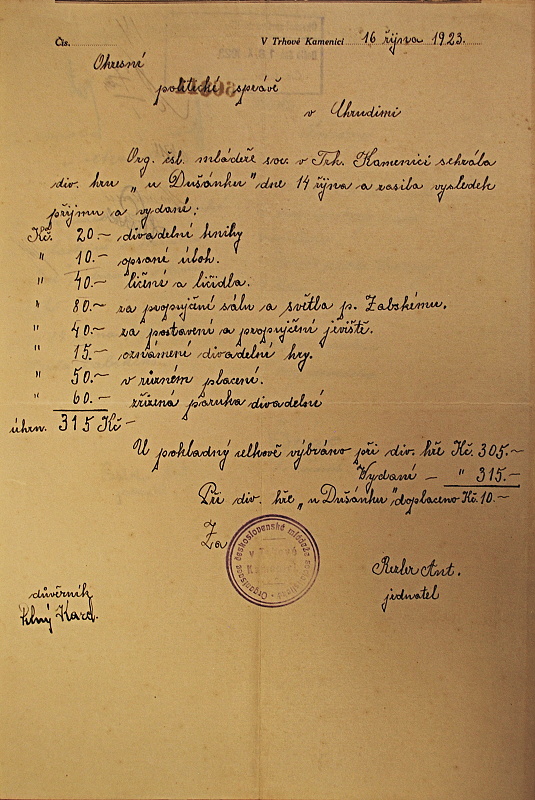 Čís.
V Trhové Kamenici 16 října 1923.
Okresní
politické správě
v Chrudimi
Org. čsl. mládeže soc. v Trh. Kamenici sehrála
div. hru „u Dušánku" dne 14 října a zasila vysledek
přijmu a vydané:
Kč. 20.– divadelní knihy
" 10.– opsané úloh.
" 40.– ličení a ličidla.
" 80.– za propujčení sálu a světla p. Zabskému.
" 40.– za postavení a propujčení jeviště.
" 15.– oznámení divadelní hry.
" 50.– v různém placení.
" 60.– zřízená paruka divadelní
úhrn. 315 Kč –
U pokladny celkově výbráno při div. hře Kč. 305.–
Vydaní – " 315.–
Při div. hře „u Dušánku" doplaceno Kč. 10.–
Za
Organisace československé mládeže socialistické
v Trhové
Kamenici
Ant.
jednatel
důvěrník
Karel.